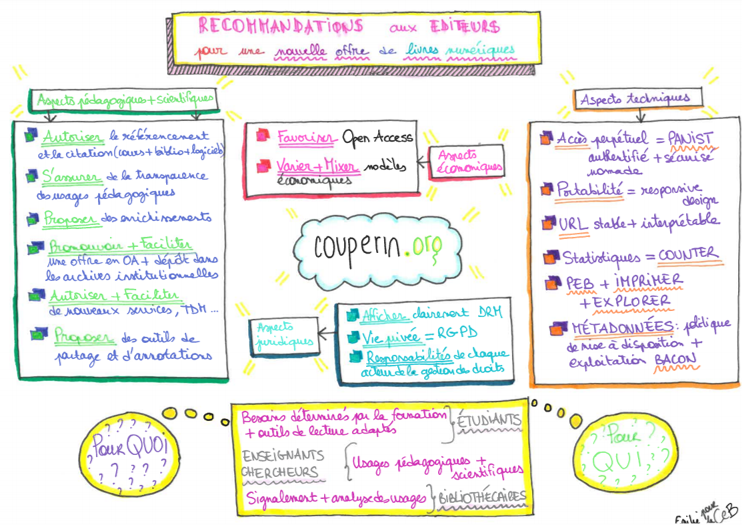 RECOMMANDATIONS aux EDITEURS
pour une nouvelle offre de livres numériques
Aspects pédagogiques + scientifiques
Autoriser le référencement
et la citation (cours + biblio + logiciels)
S'assurer de la transparence
des usages pédagogiques
Proposer des enrichissements
Promouvoir + Faciliter
une offre en OA + dépôt dans
les archives institutionnelles
Autoriser + Faciliter
de nouveaux services, TDM ...
Proposer des outils de
partage et d'annotations
Favoriser Open Access
Varier + Mixer modèles
économiques
Aspects
économiques
couperin.org
Aspects
juridiques
Afficher clairement DRM
Vie privée = RGPD
Responsabilités de chaque
acteur de la gestion des droits
Aspects techniques
Accès perpétuel = PANIST
authentifié + sécurisé
nomade
Portabilité = responsive
design
URL stable + interprétable
Statistiques = COUNTER
PEB + IMPRIMER
+ EXPLORER
MÉTADONNÉES : politique
de mise à disposition +
exploitation BACON
Pour QUOI
? ? ? ? ? ? ? ? ?
Besoins déterminés par la formation
+ outils de lecture adaptés
ÉTUDIANTS
ENSEIGNANTS
CHERCHEURS
Usages pédagogiques +
scientifiques
Signalement + analyse des usages
BIBLIOTHÉCAIRES
Pour
QUI
? ? ? ? ? ? ? ? ?
pour
la CeB